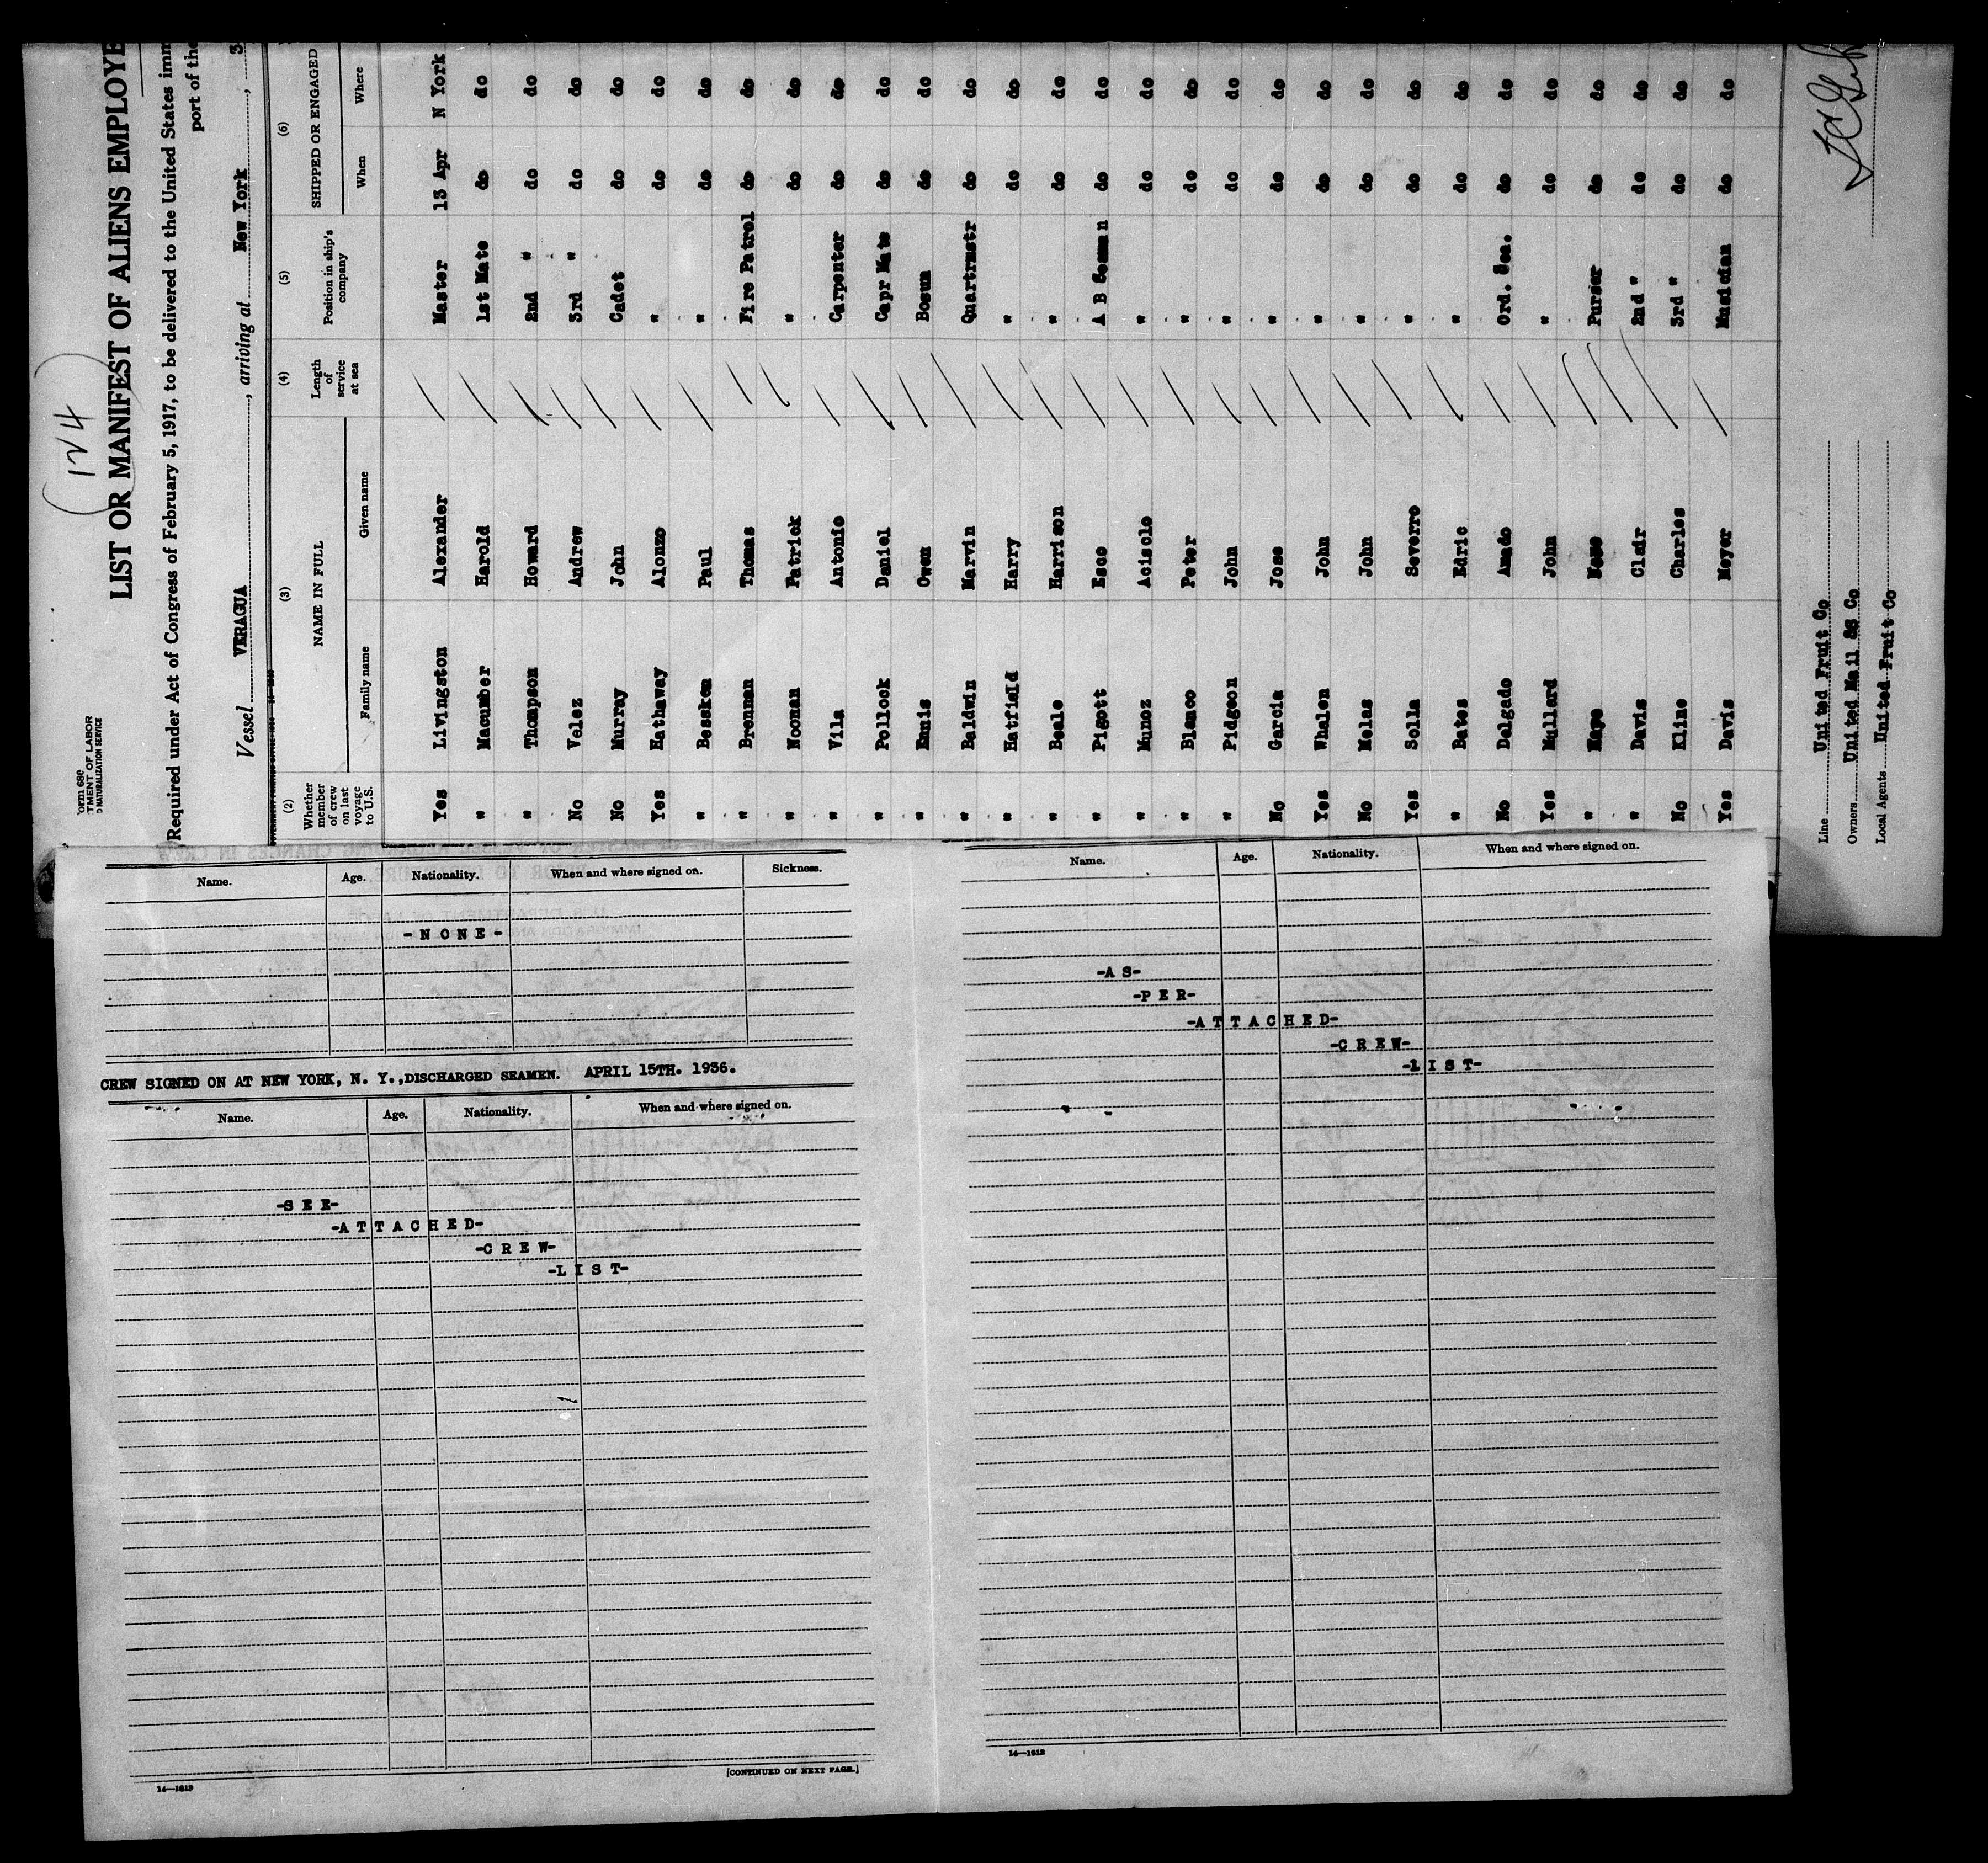 (124)
LIST OR MANIFEST OF ALIENS EMPLOYE
Form 680
TMENT OF LABOR
D NATURALIZATION SERVICE
Required under Act of Congress of February 5, 1917, to be delivered to the United States imm
port of the
Vessel VERAGUA, arriving at New York, 3
(2) (3) (4) (5) (6)
Whether member of crew on last voyage to U.S. NAME IN FULL Length of service at sea Position in ship's company SHIPPED OR ENGAGED
Family name Given name When Where
Yes Livingston Alexander Master 13 Apr N York
" Macumber Harold 1st Mate do do
" Thompson Howard 2nd " do do
No Velez Andrew 3rd " do do
No Murray John Cadet do do
Yes Hathaway Alonzo " do do
" Beseken Paul " do do
" Brennan Thomas Fire Patrol do do
" Noonan Patrick " do do
" Vila Antonio Carpenter do do
" Pollock Daniel Capr Mate do do
" Ennis Owen Bosun do do
" Baldwin Marvin Quartrmstr do do
" Hatfield Harry " do do
" Beale Harrison " do do
" Pigott Esco A B Seaman do do
" Munoz Acisclo " do do
" Blanco Peter " do do
" Pidgeon John " do do
No Garcia Jose " do do
Yes Whalen John " do do
No Melas John " do do
Yes Solla Severro " do do
" Bates Edric " do do
No Delgado Amado Ord. Sea. do do
Yes Mullard John " do do
" Purser do do
" Davis Clair 2nd " do do
No Kline Charles 3rd " do do
Yes Davis Meyer Musician do do
Line United Fruit Co
Owners United Mail SS Co
Local Agents United Fruit Co
Name. Age. Nationality. When and where signed on. Sickness.
-N O N E-
CREW SIGNED ON AT NEW YORK, N. Y.,DISCHARGED SEAMEN. APRIL 15TH. 1936.
Name. Age. Nationality. When and where signed on.
-S E E-
-A T T A C H E D-
-C R E W-
-L I S T-
14—1613
[CONTINUED ON NEXT PAGE.]
Name. Age. Nationality. When and where signed on.
-A S-
-P E R-
-A T T A C H E D-
-C R E W-
-L I S T-
14—1613